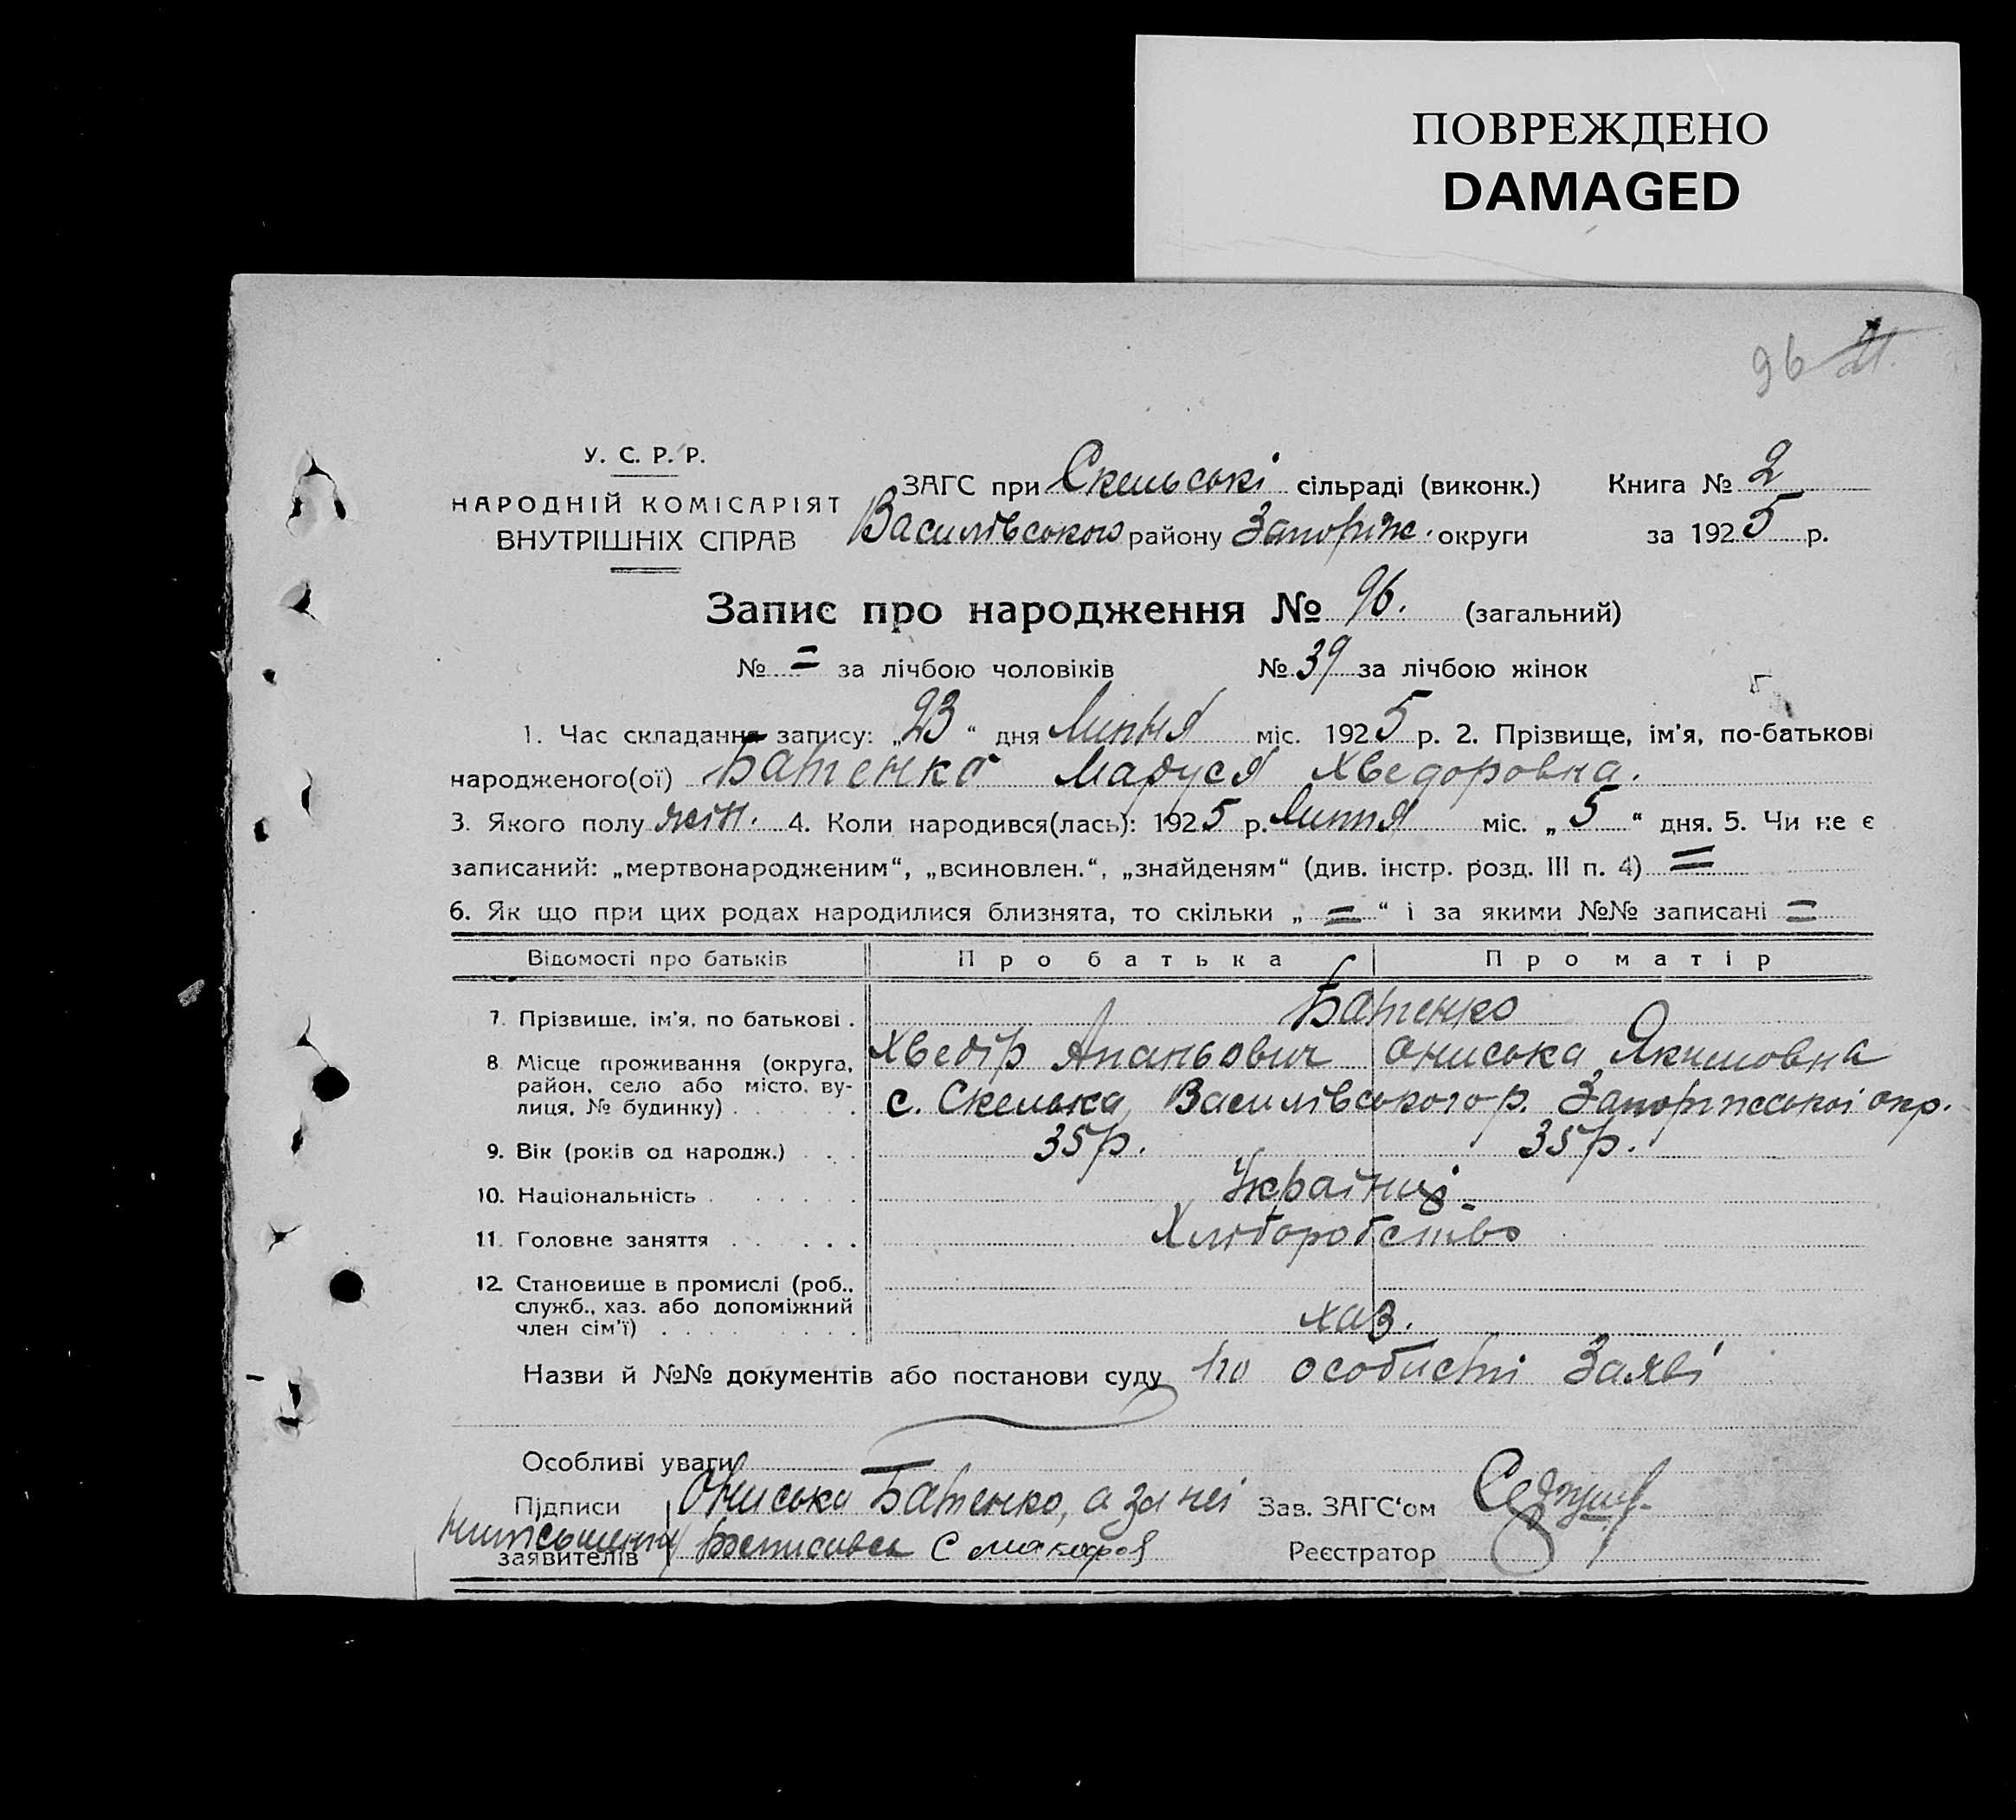 ПОВРЕЖДЕНО
DAMAGED
96 21.
У. С. Р. Р.
НАРОДНІЙ КОМІСАРІЯТ
ВНУТРІШНІХ СПРАВ
ЗАГС при Скельські сільраді (виконк.) Книга № 2
Василівського району Запоріж. округи за 1925 р.
Запис про народження № 96. (загальний)
№ = за лічбою чоловіків № 39 за лічбою жінок
1. Час складання запису: „23“ дня Липня міс. 1925 р. 2. Прізвище, ім'я, по-батькові
народженого(ої) Батенко Маруся Хведоровна.
3. Якого полу жін. 4. Коли народився(лась): 1925 р. Липня міс. „5“ дня. 5. Чи не є
записаний: „мертвонародженим“, „всиновлен.“, „знайденям“ (див. інстр. розд. III п. 4) =
6. Як що при цих родах народилися близнята, то скільки „=“ і за якими №№ записані =
Відомості про батьків Про батька Про матір
7. Прізвище, ім'я, по батькові . Батенко
Хведір Ананьович Ониська Якимовна
8. Місце проживання (округа, район, село або місто, вулиця, № будинку) с. Скелька, Василівського р. Запоріжської окр.
9. Вік (років од народж.) 35 р. 35 р.
10. Національність Україньці
11. Головне заняття Хліборобство
12. Становище в промислі (роб., служб., хаз. або допоміжний член сім'ї) хаз.
Назви й №№ документів або постанови суду по особисті Заяві
Особливі уваги
Підписи Ониська Батенко, а за неї Зав. ЗАГС'ом
заявителів росписавсь С Макаров Реєстратор